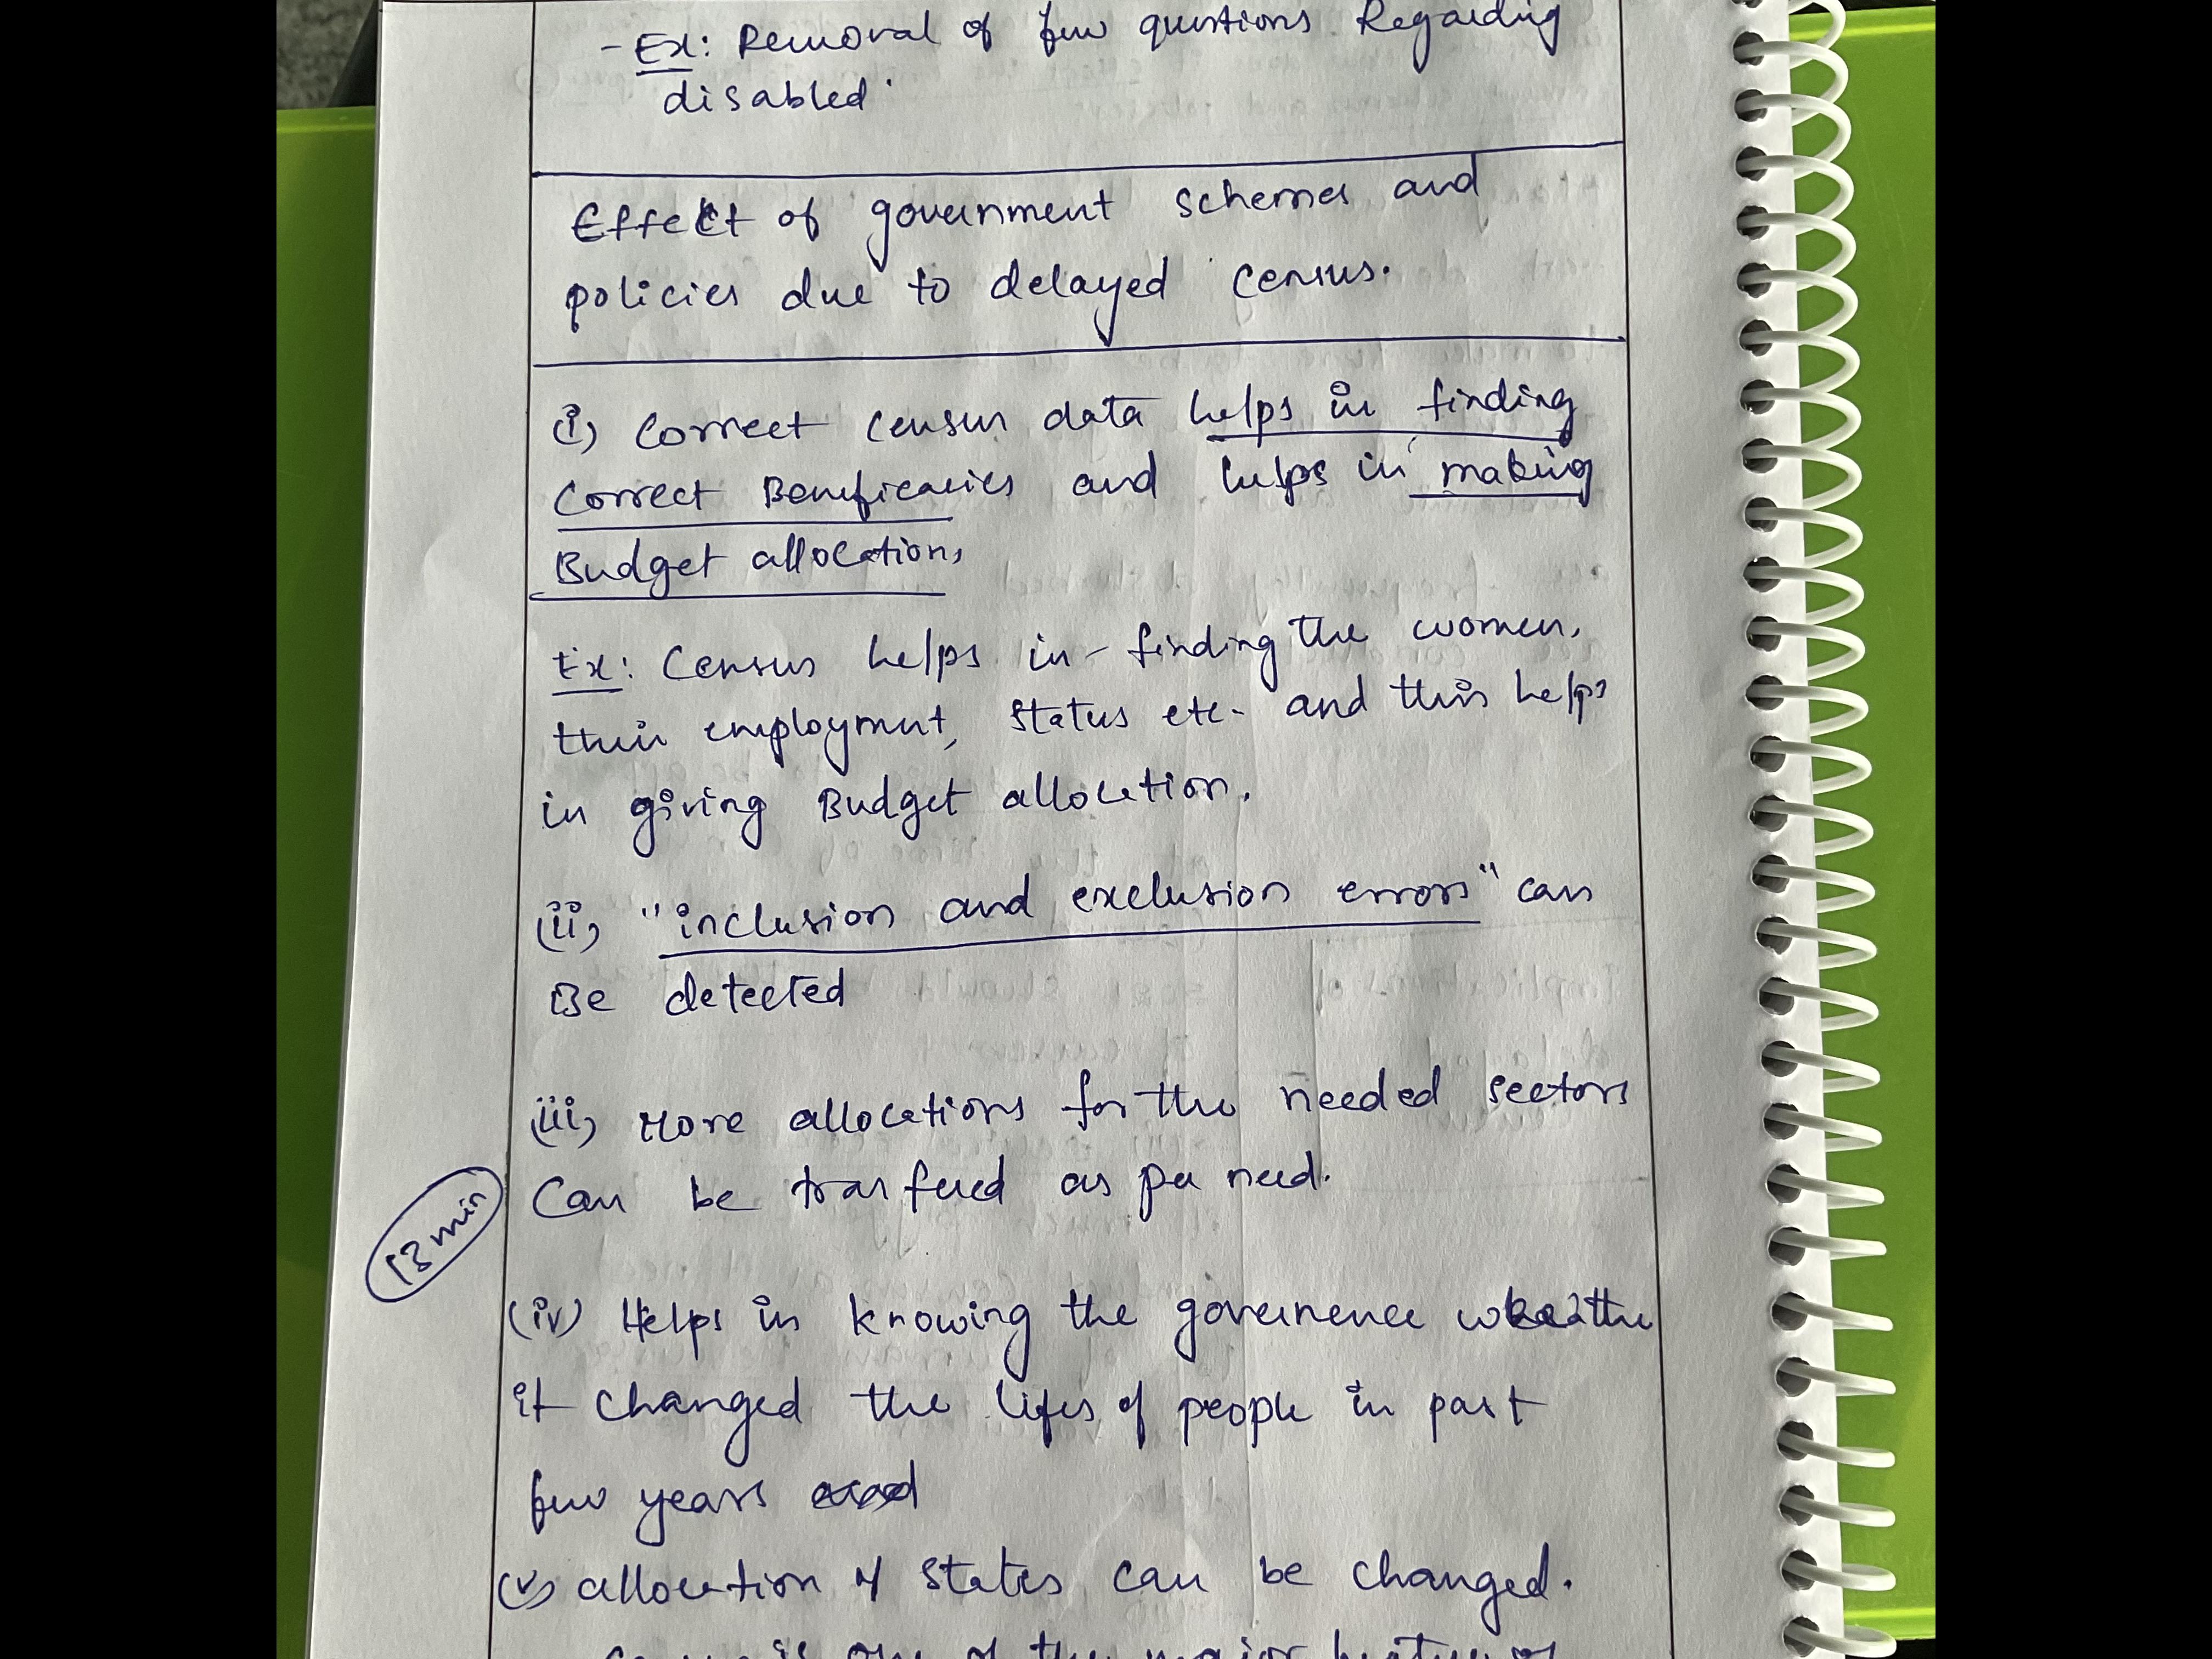 - Ex: Removal of few questions Regarding
disabled.
Effect of government schemes and
policies due to delayed census.
(i) Correct Census data helps in finding
Correct Beneficaries and helps in making
Budget allocation,
Ex: Census helps in finding the women,
their employment, status etc. and this helps
in giving Budget allocation.
(ii) "inclusion and exclusion errors" can
Be detected
(iii) More allocations for the needed sectors
Can be tranfered as per need.
13 min
(iv) Helps in knowing the governence
it changed the lifes of people in past
few years
(v) allocation of states can be changed.
one of the major